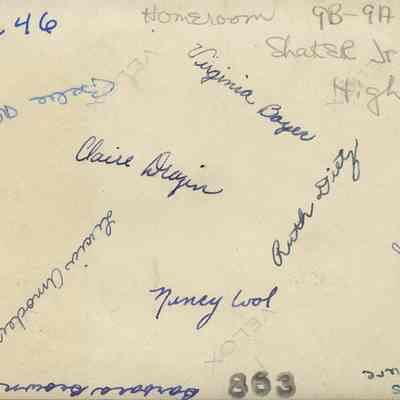 . 46
Homeroom 9B-9A
Shaker Jr
High
VELOX
Virginia Boyer
Claire Drazin
Ruth Dietz
Nency Wol
VELOX
Barbara Brown
863